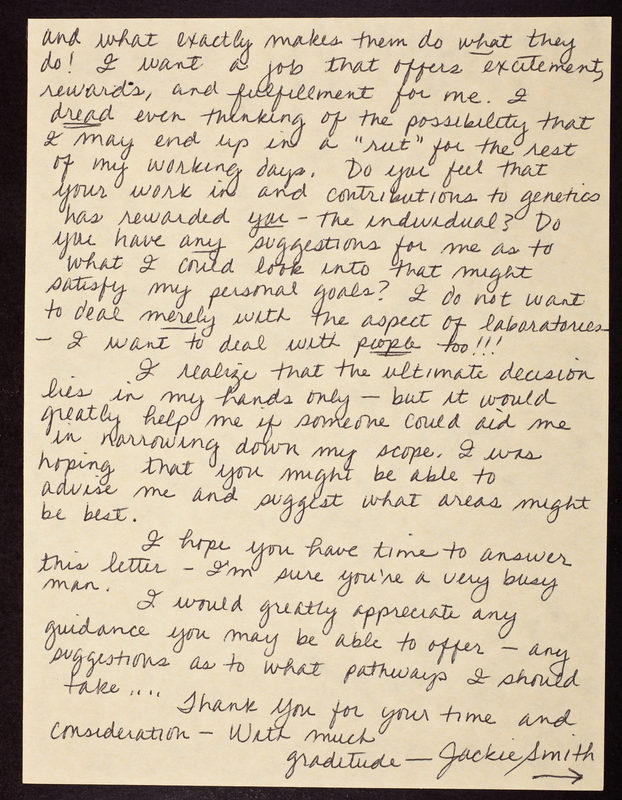 and what exactly makes them do what they
do! I want a job that offers excitement,
rewards, and fulfillment for me. I
dread even thinking of the possibility that
I may end up in a "rut" for the rest
of my working days. Do you feel that
your work in and contributions to genetics
has rewarded you - the individual? Do
you have any suggestions for me as to
what I could look into that might
satisfy my personal goals? I do not want
to deal merely with the aspect of laboratories
- I want to deal with people too!!!
I realize that the ultimate decision
lies in my hands only - but it would
greatly help me if someone could aid me
in narrowing down my scope. I was
hoping that you might be able to
advise me and suggest what areas might
be best.
I hope you have time to answer
this letter - I'm sure you're a very busy
man.
I would greatly appreciate any
guidance you may be able to offer - any
suggestions as to what pathways I should
take....
Thank you for your time and
consideration - With much
graditude - Jackie Smith
→